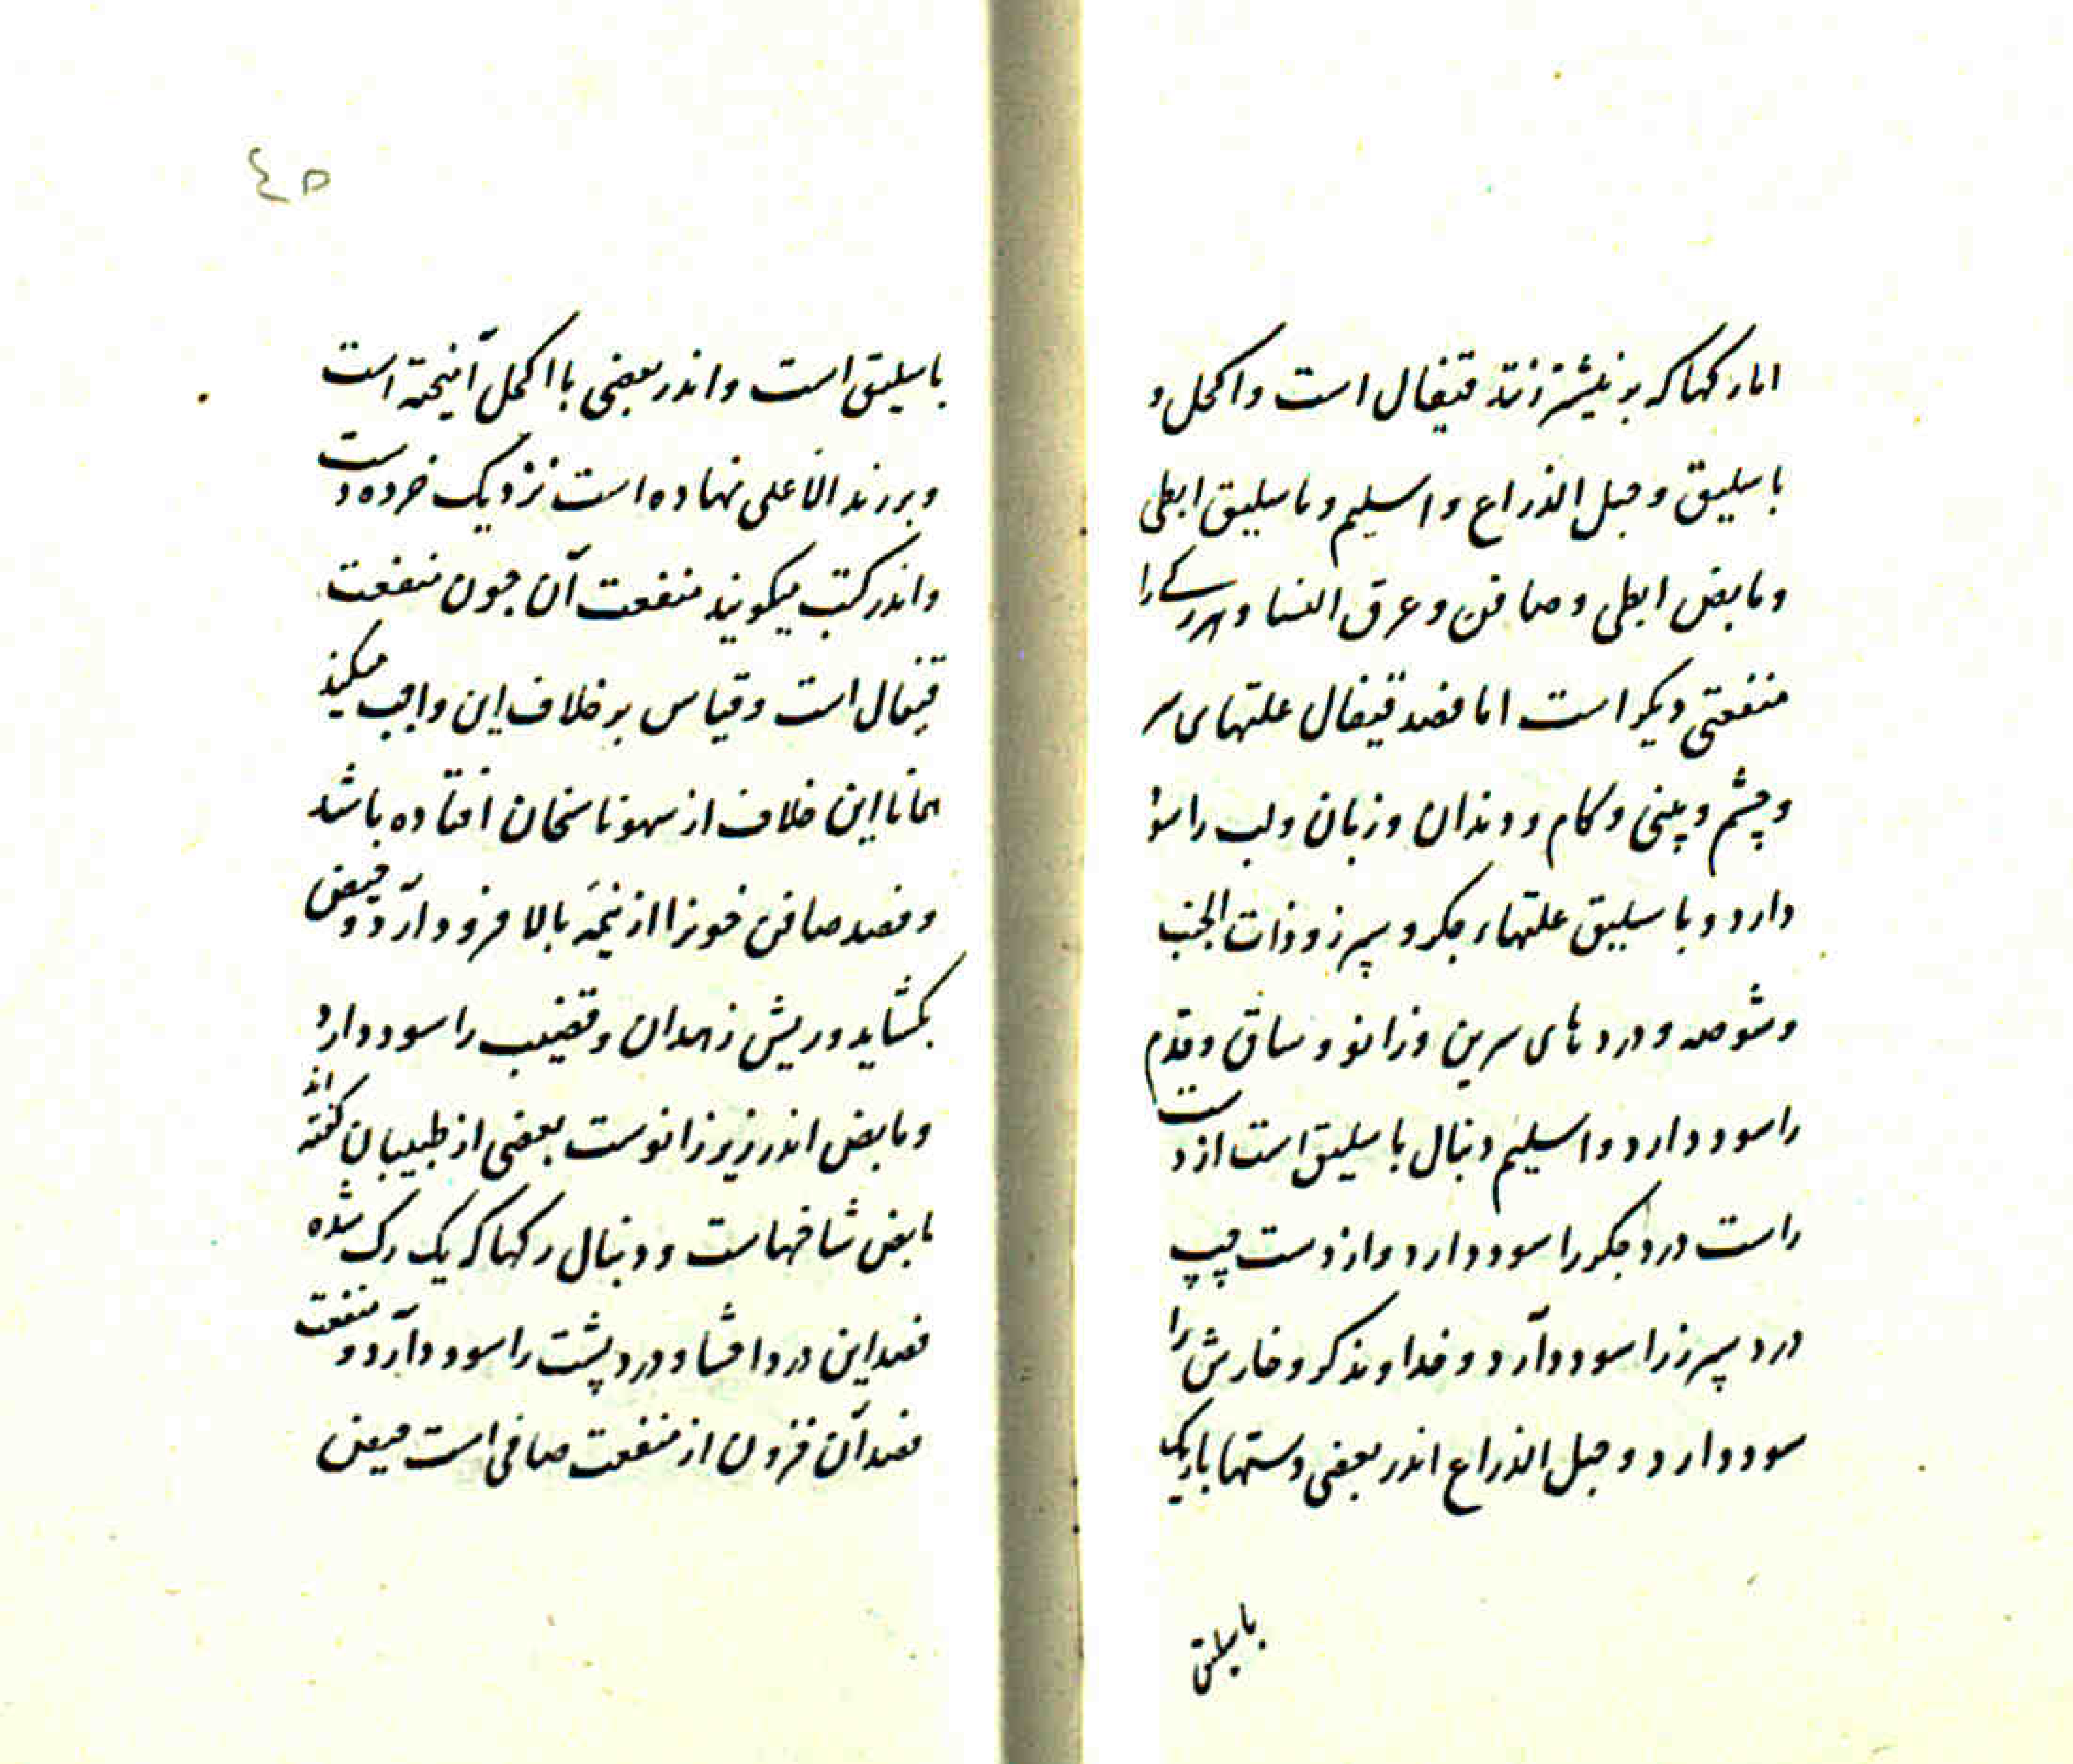 اما رکهاکه بر نیشتر زنند قیفال است و اکحل و
باسلیق و حبل الذراع و اسیلم و باسلیق ابطی
و مابض ابطی و صافن و عرق النسا و هر رکے را
منفعتی دیکر است اما فصد قیفال علتهای سر
و چشم و بینی و کام و دندان و زبان و لب را سود
دارد و باسلیق علتهاء جکر و سپرز و ذات الجنب
و شوصه و دردهای سرین و زانو و ساق و قدم
را سود دارد و اسیلم دنبال باسلیق است از دست
راست درد جکر را سود دارد و از دست چپ
درد سپرز را سود دآرد و خداوند کر و خارش را
سود دارد و حبل الذراع اندر بعضی دستها باریک
باسلیق
٤٥
باسلیق است و اندر بعضی با اکحل آمیخته است
و بر زند الاعلی نهاده است نزدیک خرده دست
و اندر کتب میکویند منفعت آن جون منفعت
قیفال است و قیاس بر خلاف این واجب میکند
همانا این خلاف از سهو ناسخان افتاده باشد
و فصد صافن خونرا از نیمهٔ بالا فرود آرد و حیض
بکشاید و ریش زهدان و قضیب را سود دارد
و مابض اندر زیر زانوست بعضی از طبیبان کفته اند
مابض شاخهاست و دنبال رکهاکه یک رک شده
فصد این درد احشا و درد پشت را سود دآرد و منفعت
فصد آن فزون از منفعت صافی است حیض